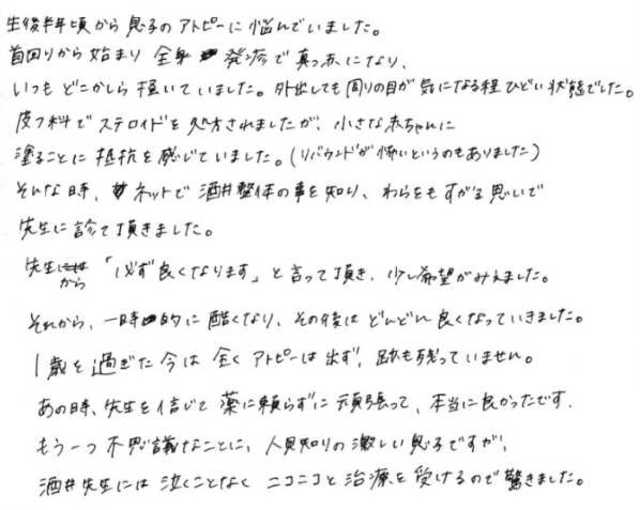 生後半年頃から息子のアトピーに悩んでいました。
首回りから始まり全身発疹で真っ赤になり、
いつもどこかしら掻いていました。外出しても周りの目が気になる程ひどい状態でした。
皮フ科でステロイドを処方されましたが、小さな赤ちゃんに
塗ることに抵抗を感じていました。(リバウンドが怖いというのもありました)
そんな時、ネットで酒井整体の事を知り、わらをもすがる思いで
先生に診て頂きました。
先生から「必ず良くなります」と言って頂き、少し希望がみえました。
それから、一時的に酷くなり、その後はどんどん良くなっていきました。
1歳を過ぎた今は全くアトピーは出ず、跡も残っていません。
あの時、先生を信じて薬に頼らずに頑張って、本当に良かったです。
もう一つ不思議なことに、人見知りの激しい息子ですが、
酒井先生には泣くことなくニコニコと治療を受けるので驚きました。